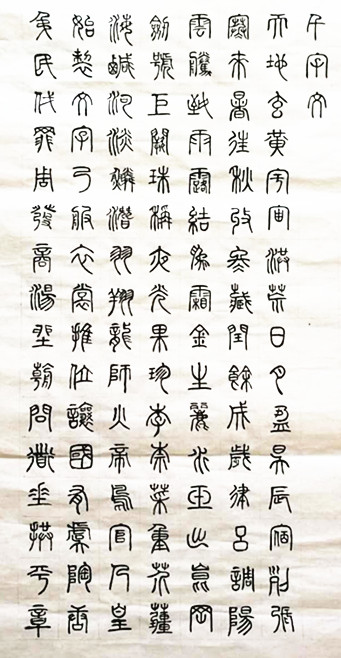 千字文
天地玄黃宇宙洪荒日月盈昃辰宿列張
寒來暑往秋收冬藏閏餘成歲律呂調陽
雲騰致雨露結為霜金生麗水玉出崑岡
劍號巨闕珠稱夜光果珍李柰菜重芥薑
海鹹河淡鱗潛羽翔龍師火帝鳥官人皇
始制文字乃服衣裳推位讓國有虞陶唐
弔民伐罪周發商湯坐朝問道垂拱平章